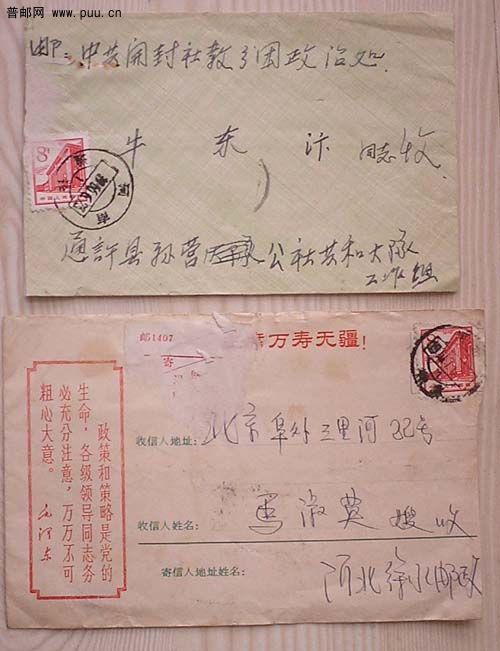 普邮网
www.puu.cn
邮：中共开封社教分团政治处
8分
河南
牛东汴 同志收
通許县孙营公社共和大队
工作组
邮1407
寄
万寿无疆！
政策和策略是党的
生命，各级领导同志务
必充分注意，万万不可
粗心大意。
毛泽东
收信人地址：北京阜外三里河22号
收信人姓名：馬淑英 嫂收
寄信人地址姓名：河北徐水邮政